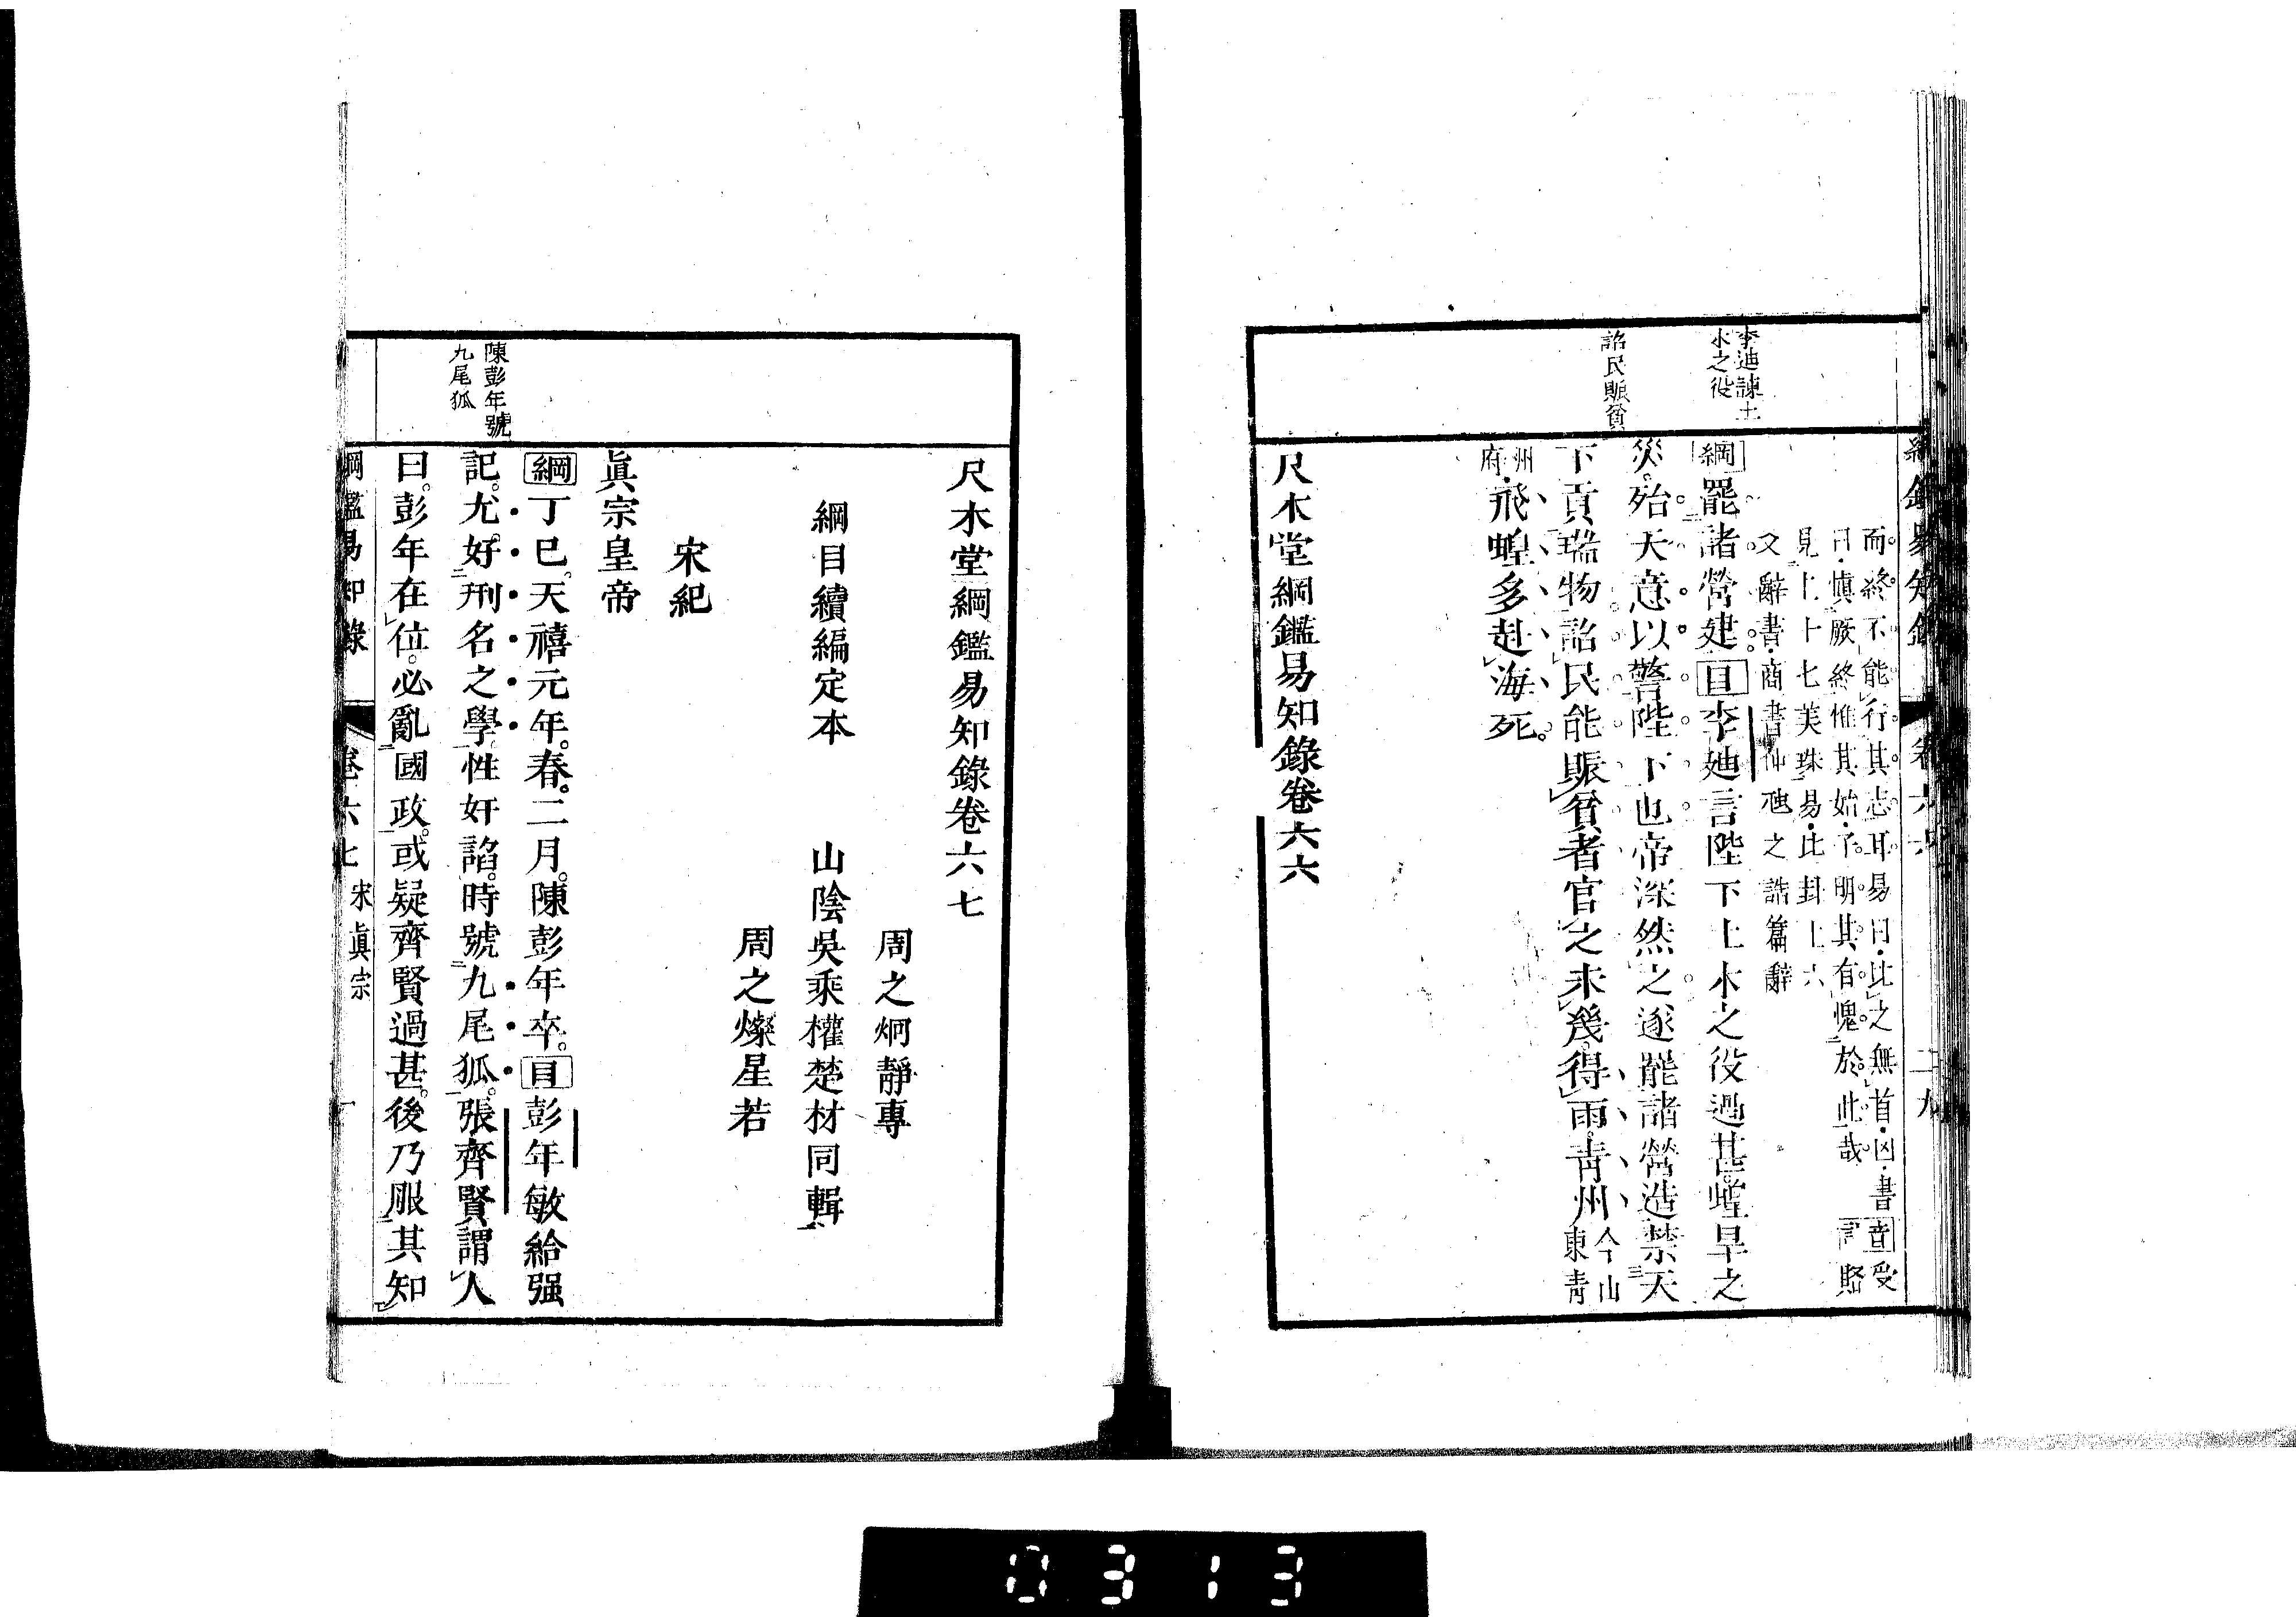 綱鑑易知錄 卷六六 二九
李迪諫土
木之役
詔民賑貧
而終不能行其志耳易曰比之無首凶書
曰愼厥終惟其始予明其有愧於此哉
音受
見上十七美珠易比卦上六
又辭書商書仲虺之誥篇辭
綱罷諸營建目李迪言陛下土木之役過甚蝗旱之
災殆天意以警陛下也帝深然之遂罷諸營造禁天
下貢瑞物詔民能賑貧者官之未幾得雨靑州今山東靑
州府飛蝗多赴海死
尺木堂綱鑑易知錄卷六六
陳彭年號
九尾狐
尺木堂綱鑑易知錄卷六七
周之炯靜專
綱目續編定本 山陰吳乘權楚材同輯
周之燦星若
宋紀
眞宗皇帝
綱丁巳天禧元年春二月陳彭年卒目彭年敏給强
記尤好刑名之學性奸諂時號九尾狐張齊賢謂人
曰彭年在位必亂國政或疑齊賢過甚後乃服其知
綱鑑易知錄 卷六七 宋眞宗 一
0313